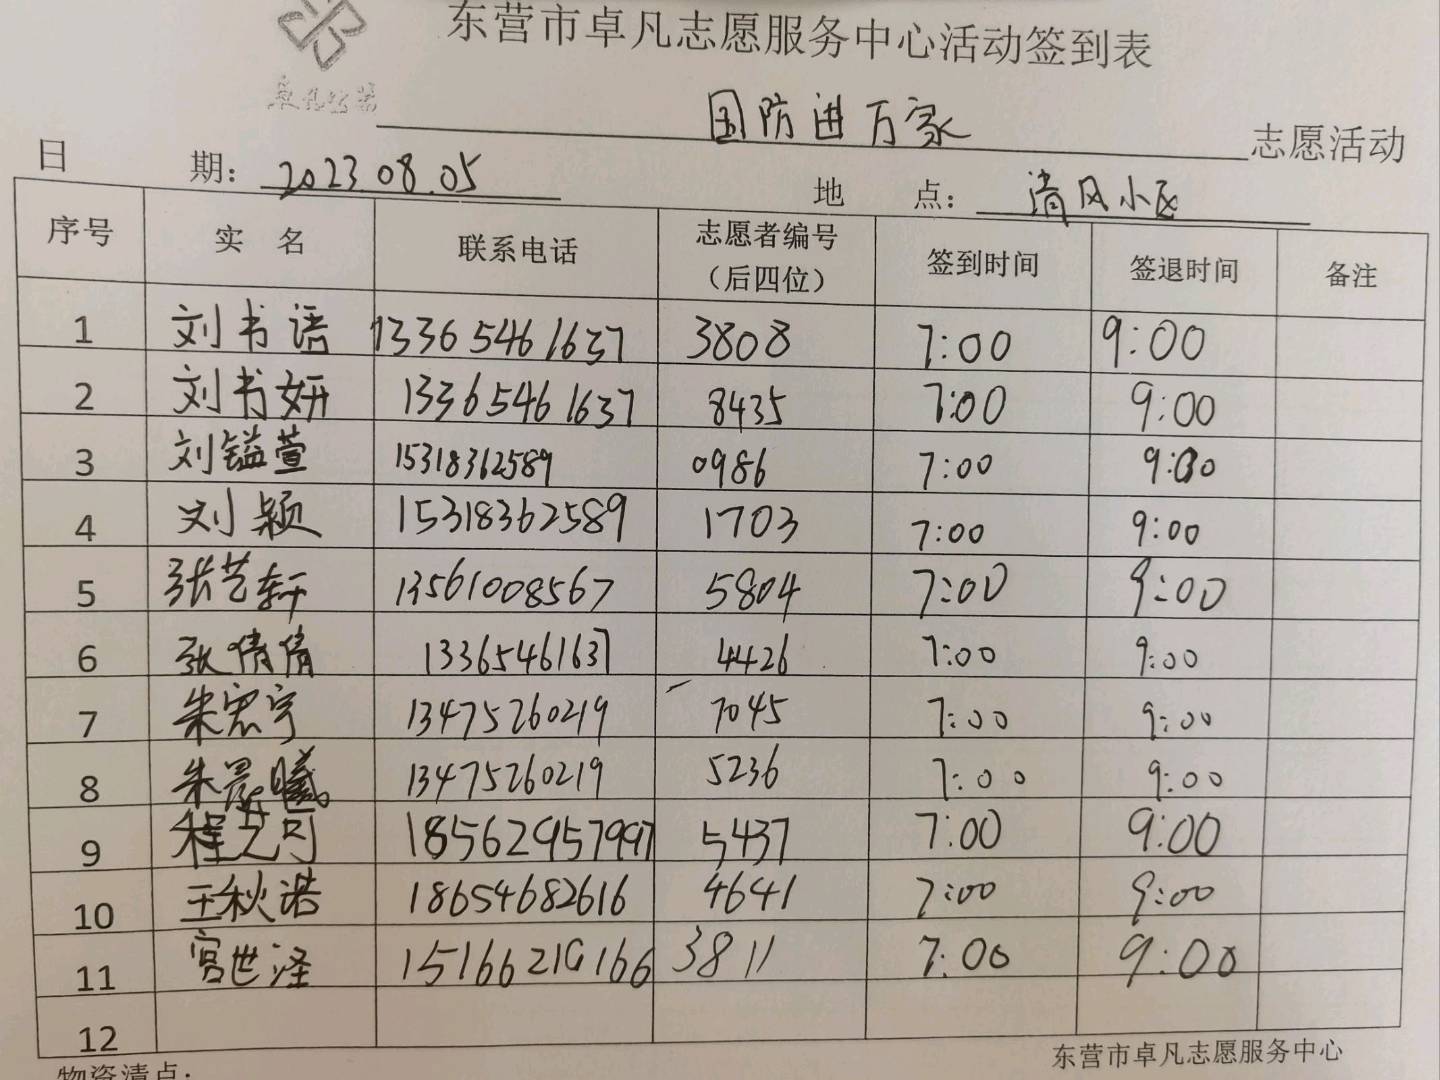 东营市卓凡志愿服务中心活动签到表
卓凡公益
国防进万家 志愿活动
日期： 2023.08.05 地点： 清风小区
序号 实名 联系电话 志愿者编号（后四位） 签到时间 签退时间 备注
1 刘书语 13365461637 3808 7:00 9:00
2 刘书妍 13365461637 8435 7:00 9:00
3 刘镒萱 15318362589 0986 7:00 9:00
4 刘颖 15318362589 1703 7:00 9:00
5 张艺轩 13561008567 5804 7:00 9:00
6 张倩倩 13365461637 4426 7:00 9:00
7 朱宏宇 13475260219 7045 7:00 9:00
8 朱晨曦 13475260219 5236 7:00 9:00
9 程之可 5437 7:00 9:00
10 王秋浩 18654682616 4641 7:00 9:00
11 宫世泽 15166219166 3811 7:00 9:00
12
东营市卓凡志愿服务中心
物资清点：